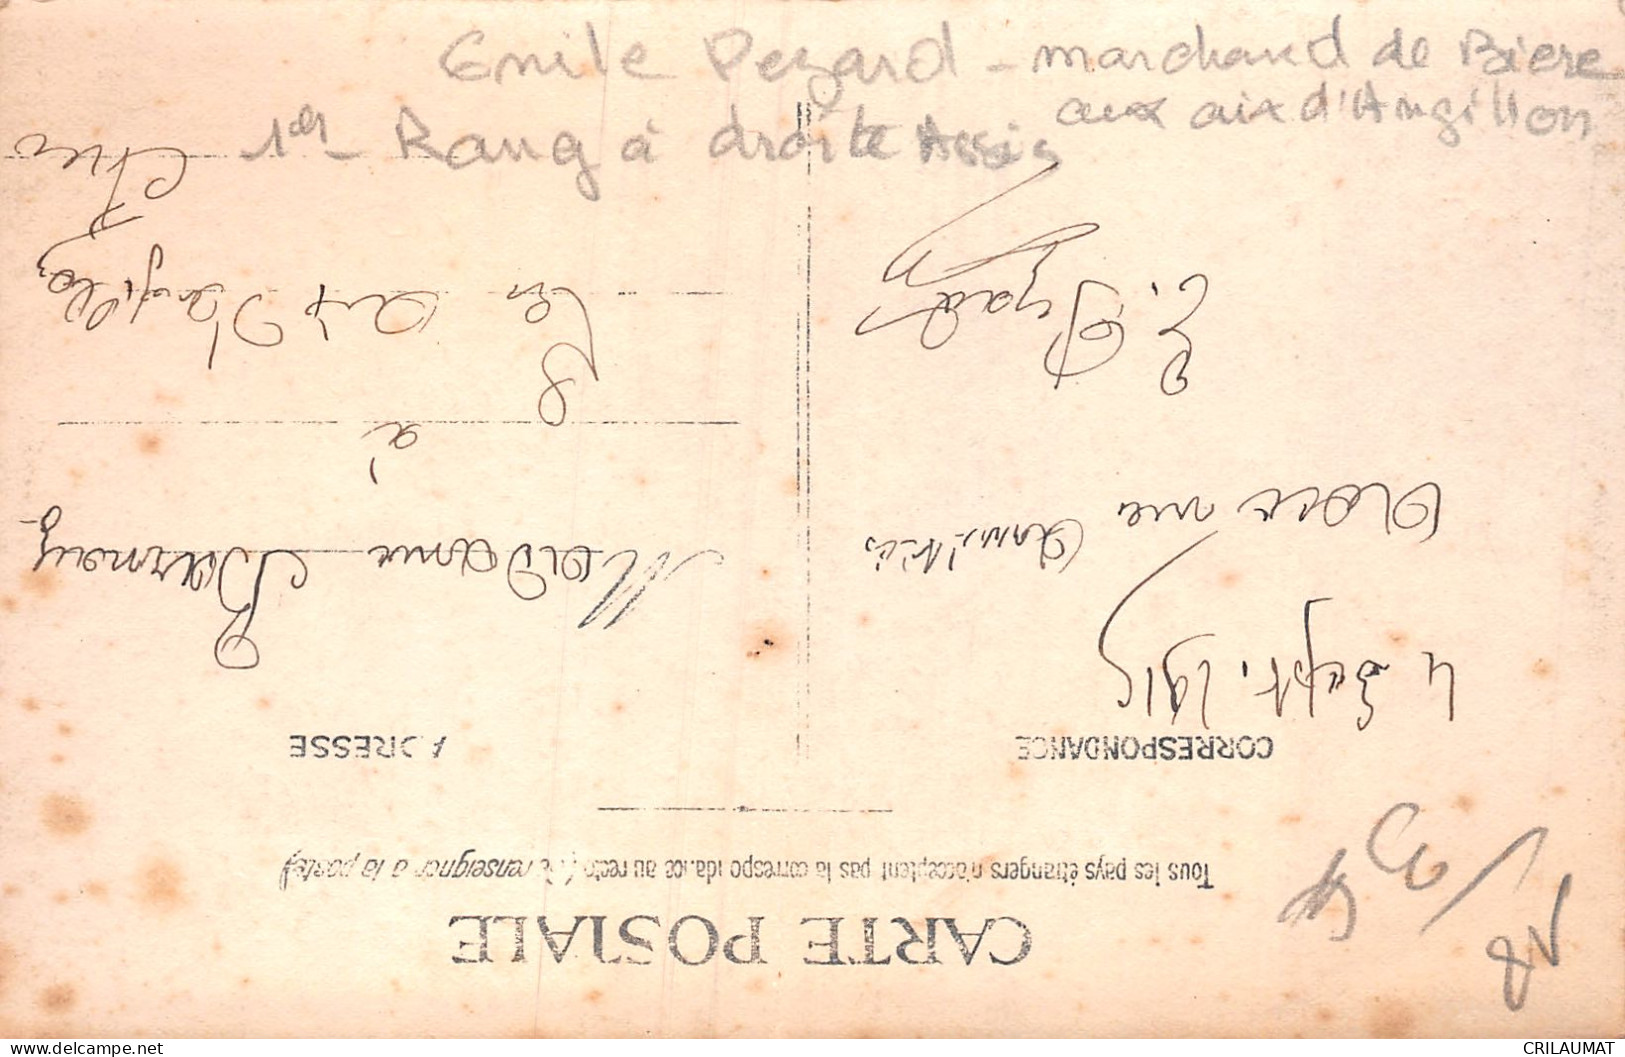 Emile Pezard - marchand de Bière
aux aix d'Angillon
1er Rang à droite Assis
CARTE POSTALE
Tous les pays étrangers n'acceptent pas la correspondance au recto (Se renseigner à la poste)
CORRESPONDANCE
4 Sept. 1915
Avec mes Amitiés
E. Pezard
ADRESSE
Madame
à
Les aix d'angillon
Cher
18
CRILAUMAT